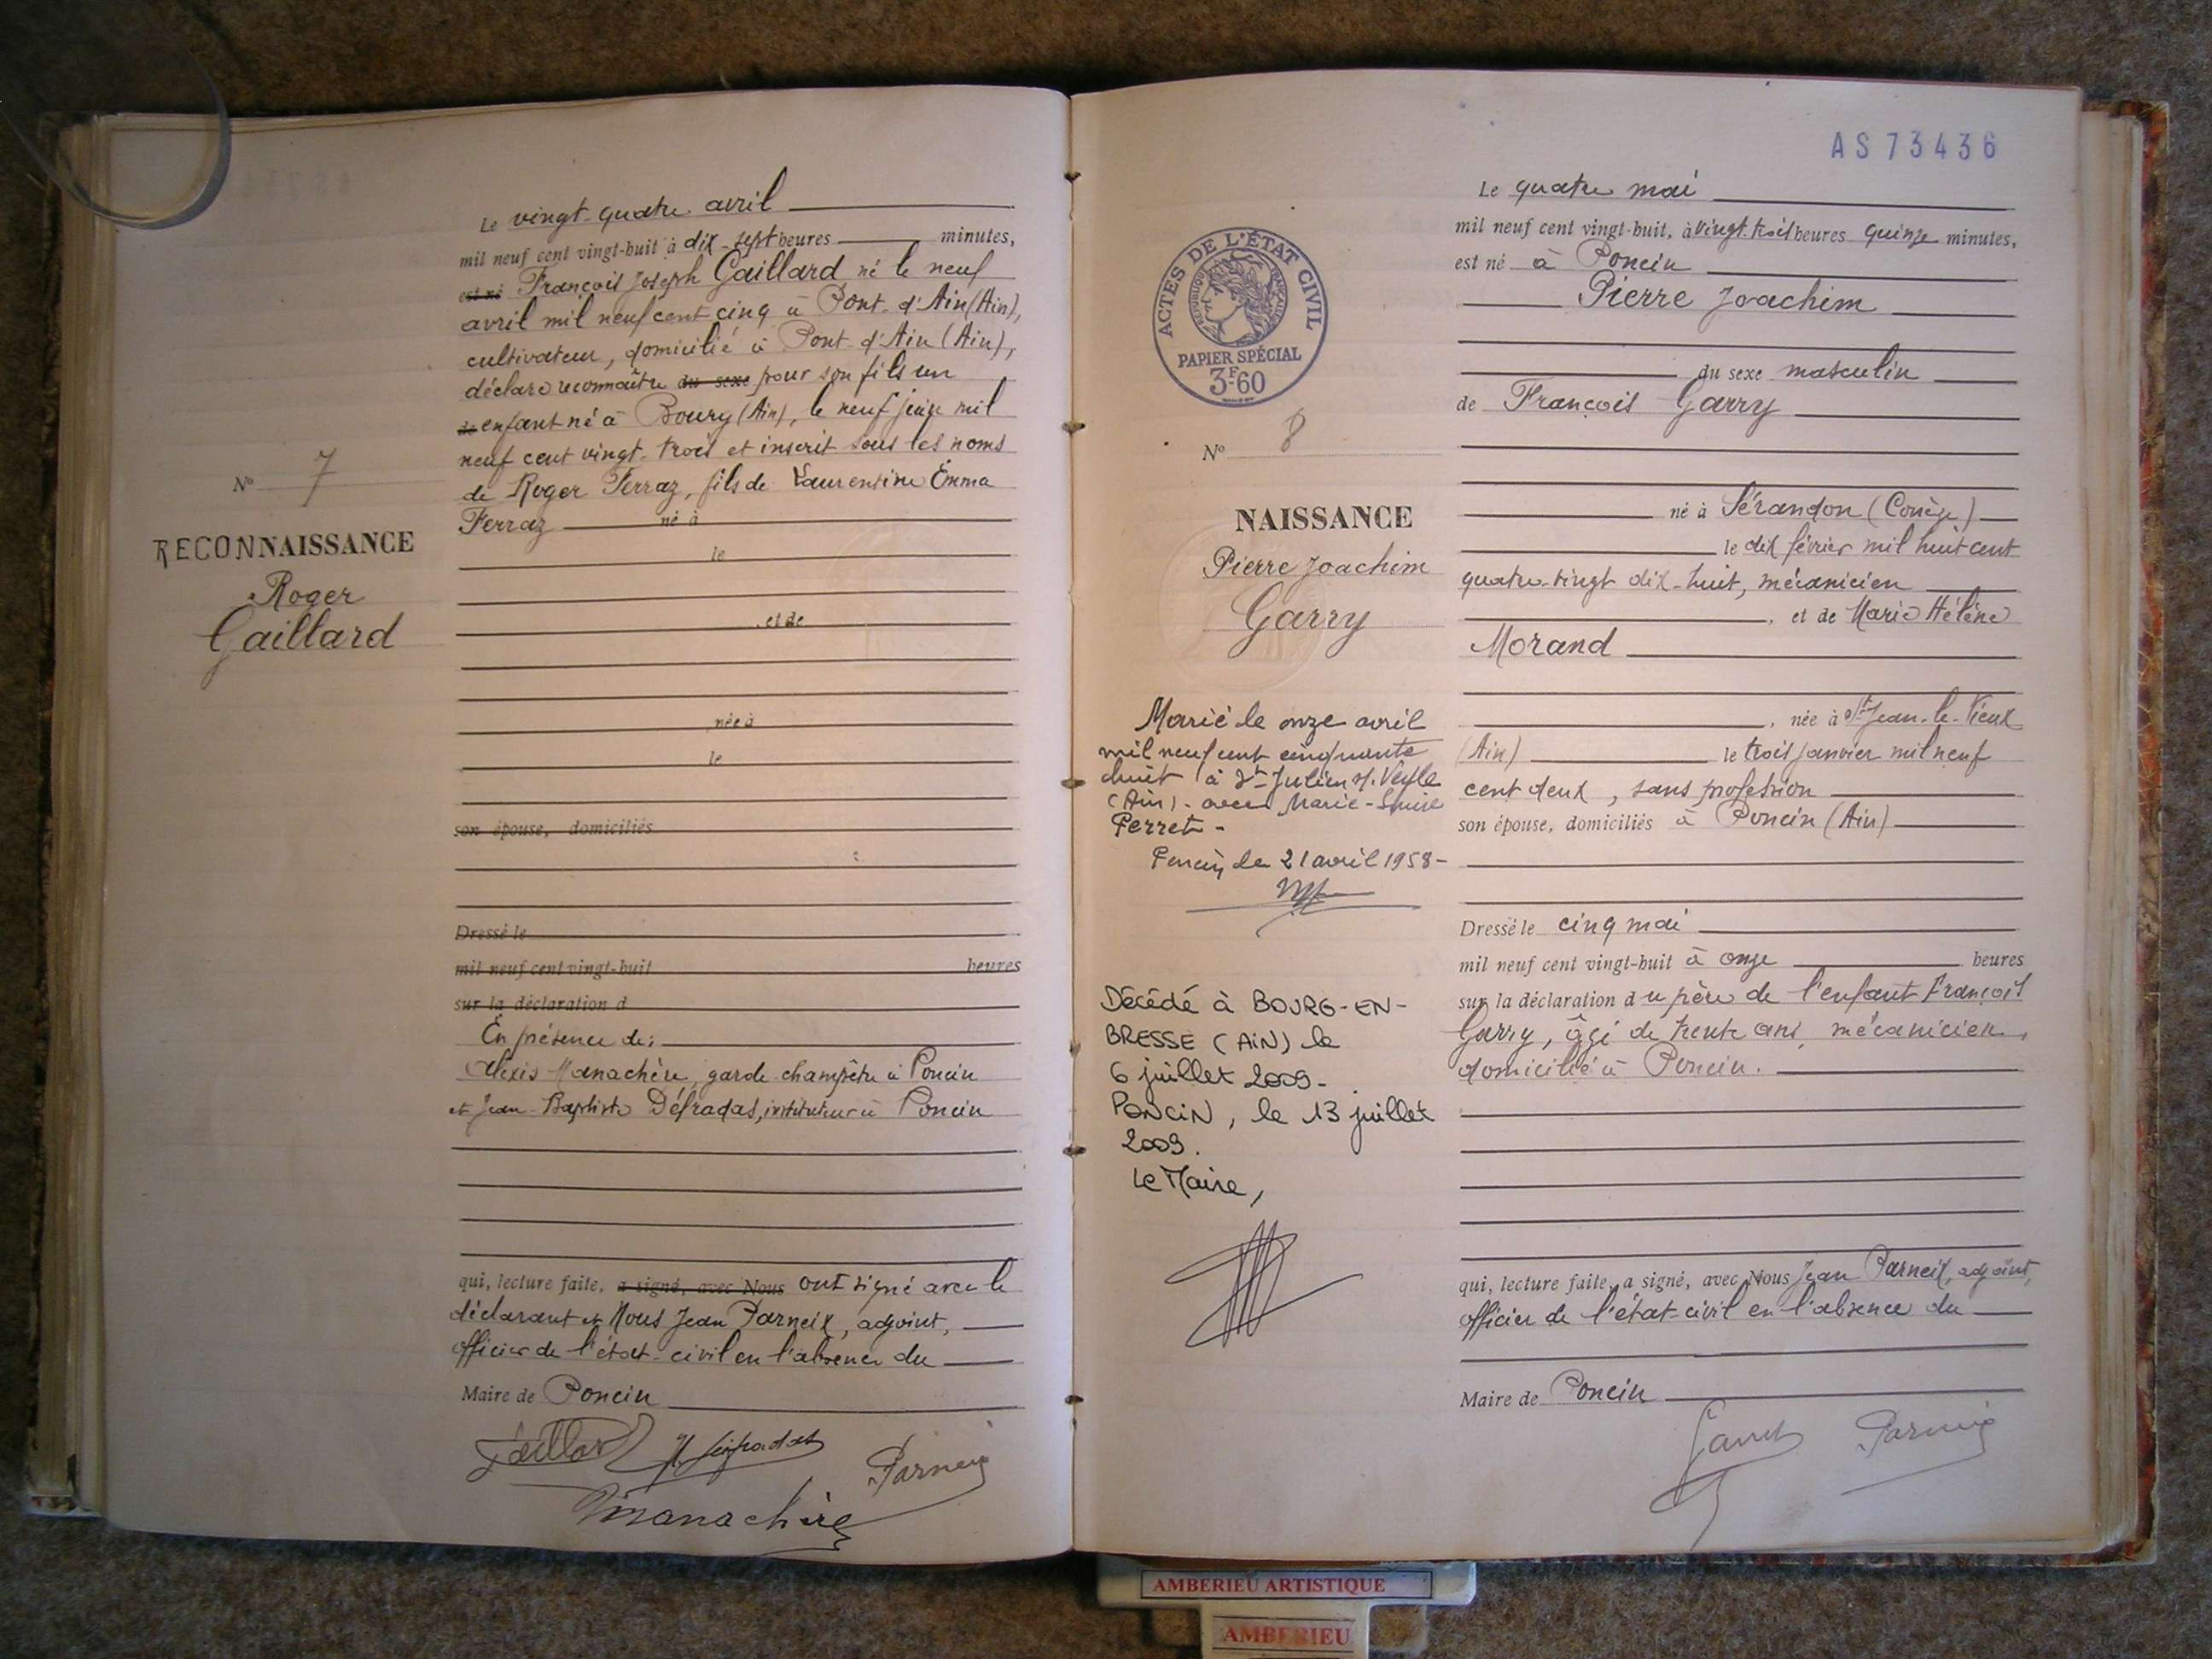 Le vingt-quatre avril
mil neuf cent vingt-huit à dix-sept heures minutes,
est né François Joseph Gaillard né le neuf
avril mil neuf cent cinq à Pont-d'Ain (Ain),
cultivateur, domicilié à Pont-d'Ain (Ain),
déclare reconnaître du sexe pour son fils un
de enfant né à Bourg (Ain), le neuf juin mil
neuf cent vingt-trois et inscrit sous les noms
de Roger Ferraz, fils de Laurentine Emma
Ferraz né à
le
et de
née à
le
son épouse, domiciliés
Dressé le
mil neuf cent vingt-huit heures
sur la déclaration d
En présence de:
Alexis Manachère, garde-champêtre à Poncin
et Jean-Baptiste Défradas, instituteur à Poncin
qui, lecture faite, a signé, avec Nous ont signé avec le
déclarant et Nous Jean Parneix, adjoint,
officier de l'état-civil en l'absence du
Maire de Poncin
Gaillard
Manachère
Parneix
N° 7
RECONNAISSANCE
Roger
Gaillard
AS73436
ACTES DE L'ÉTAT CIVIL
RÉPUBLIQUE
PAPIER SPÉCIAL
3F60
N° 8
NAISSANCE
Pierre Joachim
Garry
Marié le onze avril
mil neuf cent cinquante
huit à St Julien s/. Veyle
(Ain) - avec Marie-Louise
Perret -
Poncin le 21 avril 1958 -
Décédé à BOURG-EN-
BRESSE (AIN) le
6 juillet 2009 -
PONCIN, le 13 juillet
2009.
Le Maire,
Le quatre mai
mil neuf cent vingt-huit, à vingt-trois heures quinze minutes,
est né à Poncin
Pierre Joachim
du sexe masculin
de François Garry
né à Sérandon (Corrèze)
le dix février mil huit cent
quatre-vingt dix-huit, mécanicien
, et de Marie Hélène
Morand
, née à St-Jean-le-Vieux
(Ain) le trois janvier mil neuf
cent deux, sans profession
son épouse, domiciliés à Poncin (Ain)
Dressé le cinq mai
mil neuf cent vingt-huit à onze heures
sur la déclaration du père de l'enfant François
Garry, âgé de trente ans, mécanicien,
domicilié à Poncin.
qui, lecture faite, a signé, avec Nous Jean Parneix, adjoint,
officier de l'état-civil en l'absence du
Maire de Poncin
Garry
Parneix
AMBERIEU ARTISTIQUE
AMBERIEU